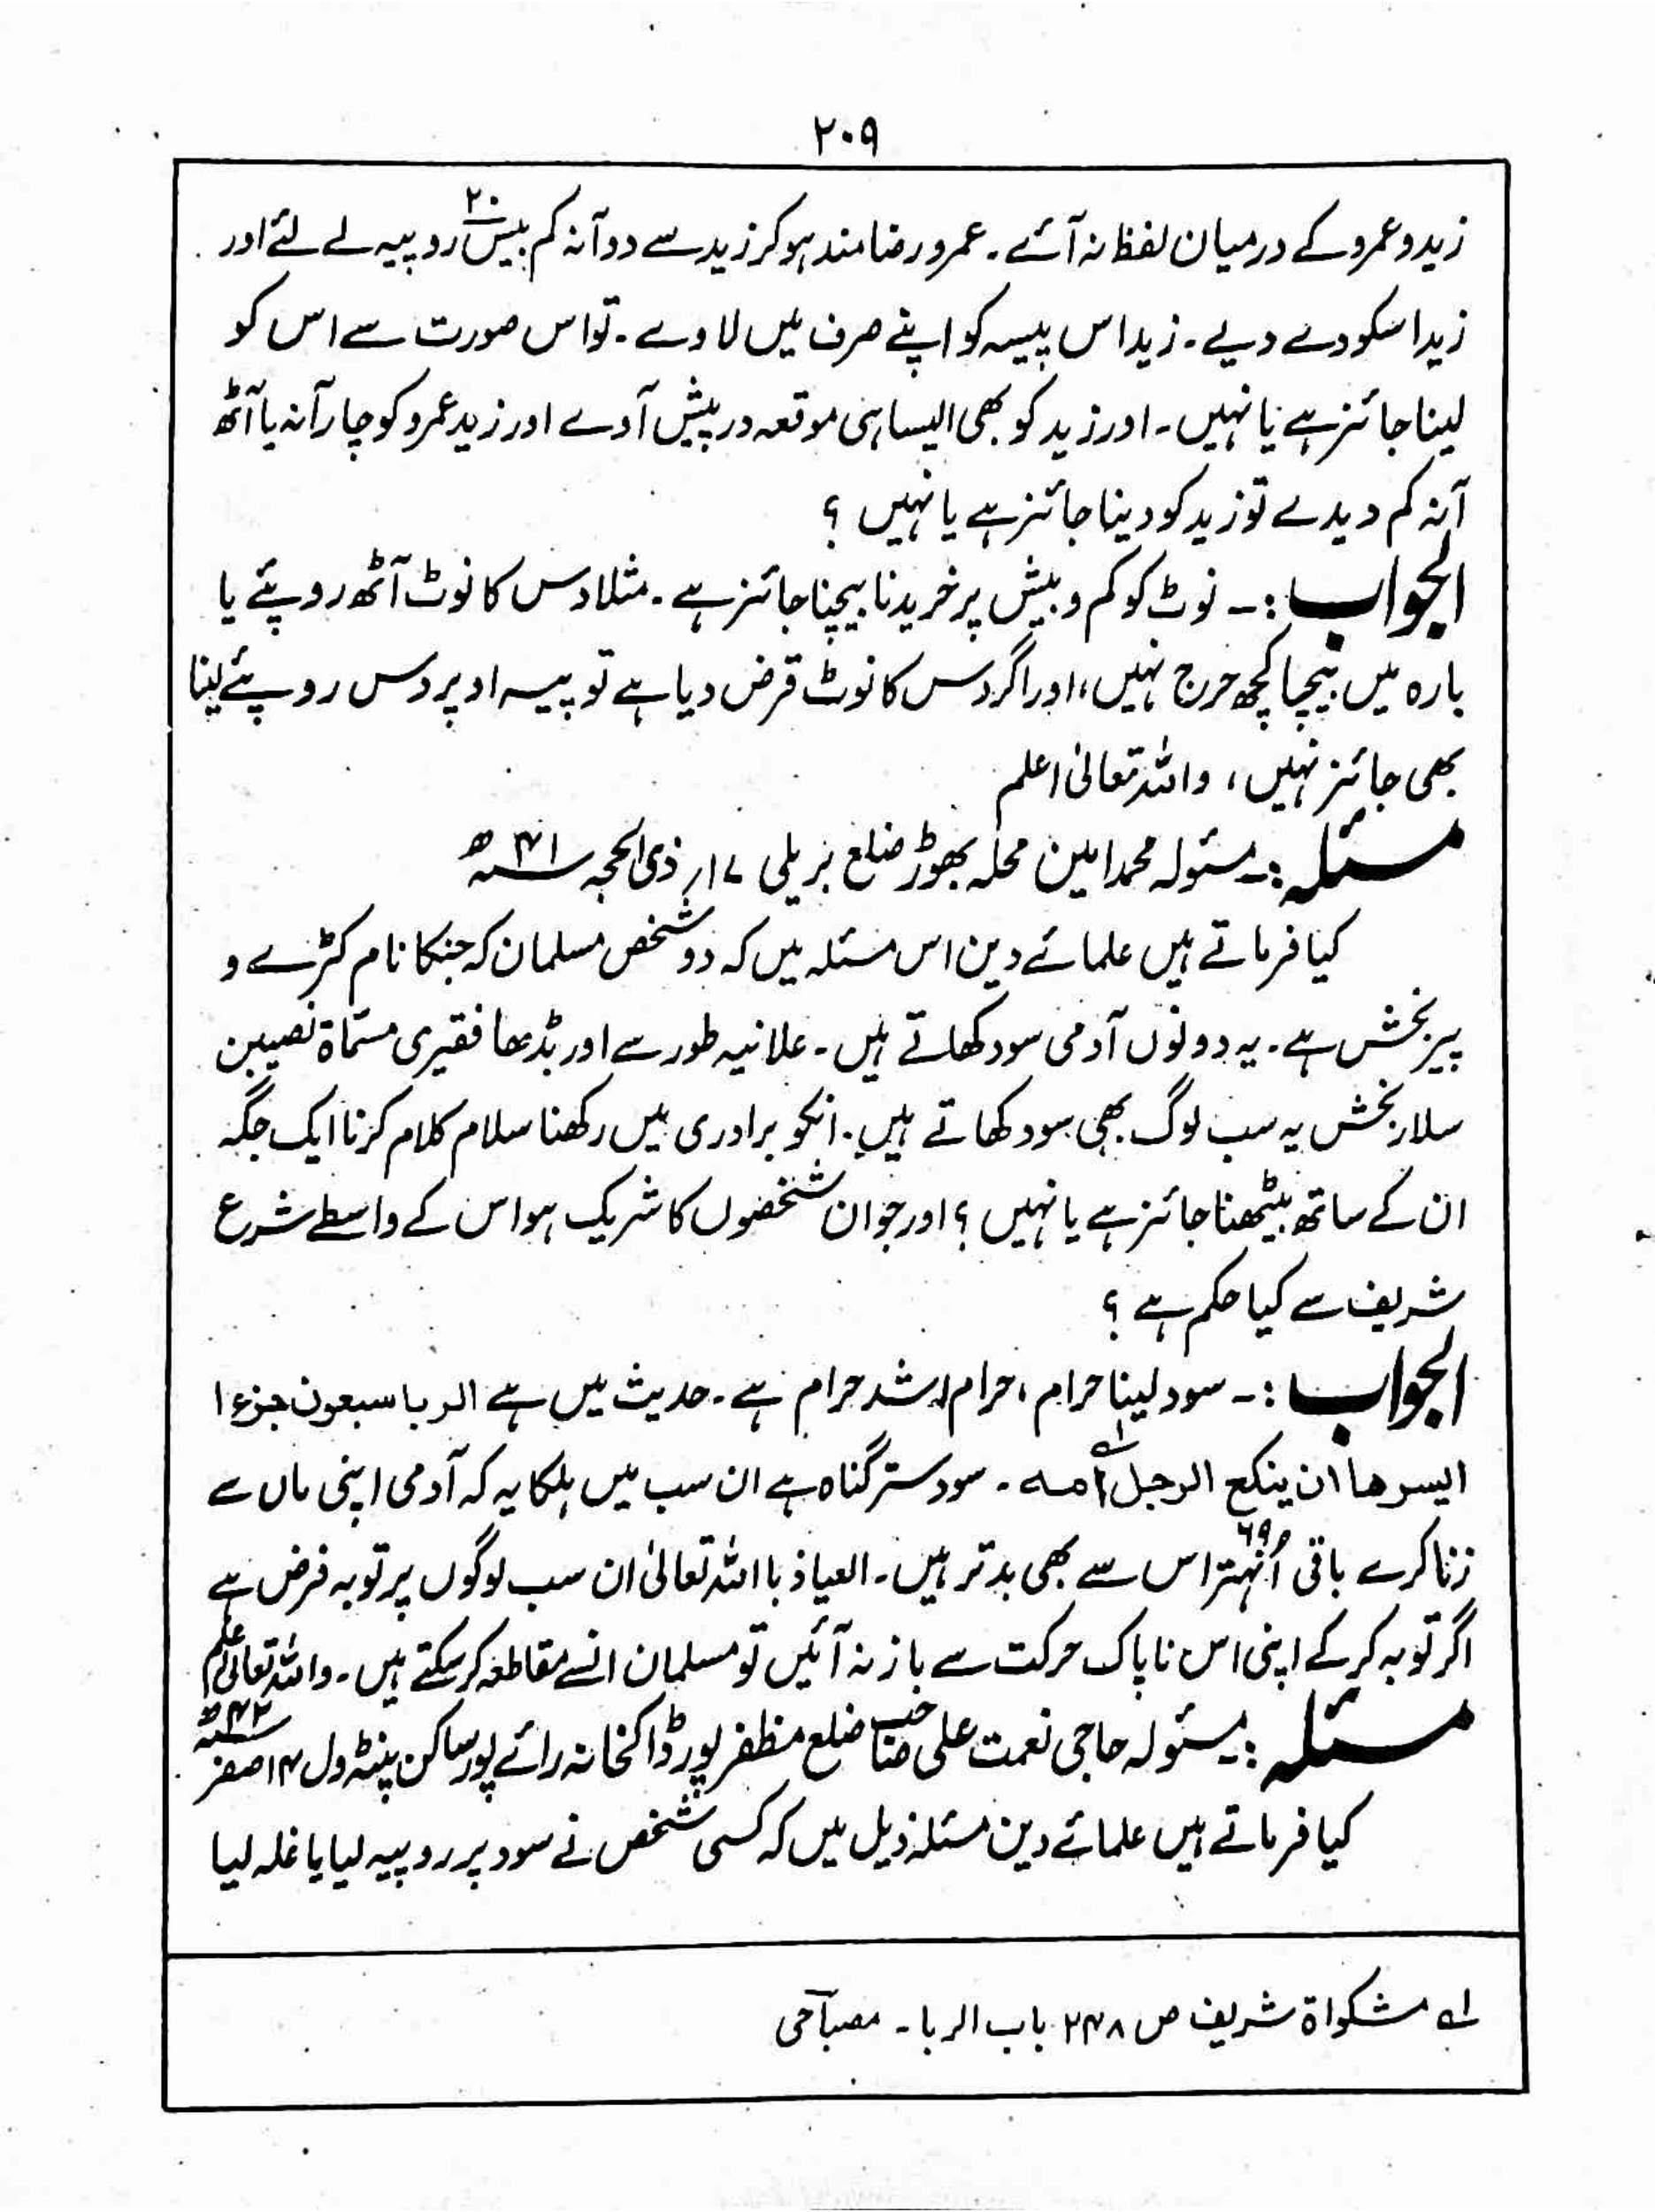 ۲۰۹
زید و عمرو کے درمیان لفظ نہ آئے۔ عمرو رضا مند ہو کر زید سے دو آنہ کم بیس۲۰ روپیہ لے لئے اور
زید اسکو دے دیے۔ زید اس پیسہ کو اپنے صرف میں لاوے۔ تو اس صورت سے اس کو
لینا جائز ہے یا نہیں۔ اور زید کو بھی ایسا ہی موقعہ درپیش آوے اور زید عمرو کو چار آنہ یا آٹھ
آنہ کم دیدے تو زید کو دینا جائز ہے یا نہیں ؟
الجواب :۔ نوٹ کو کم و بیش پر خریدنا بیچنا جائز ہے۔ مثلا دس کا نوٹ آٹھ روپئے یا
بارہ میں بیچا کچھ حرج نہیں، اور اگر دس کا نوٹ قرض دیا ہے تو پیسہ اوپر دس روپئے لینا
بھی جائز نہیں، واللہ تعالیٰ اعلم
مسئلہ :۔ مسئولہ محمد امین محلہ بھوڑ ضلع بریلی ۱۷؍ ذی الحجہ سنہ ۴۱ھ
کیا فرماتے ہیں علمائے دین اس مسئلہ میں کہ دو شخص مسلمان کہ جنکا نام کٹرے و
پیر بخش ہے۔ یہ دونوں آدمی سود کھاتے ہیں۔ علانیہ طور سے اور بڈھا فقیری مسمّاۃ نصیبن
سلار بخش یہ سب لوگ بھی سود کھاتے ہیں۔ انکو برادری میں رکھنا سلام کلام کرنا ایک جگہ
ان کے ساتھ بیٹھنا جائز ہے یا نہیں ؟ اور جو ان شخصوں کا شریک ہو اس کے واسطے شرع
شریف سے کیا حکم ہے ؟
الجواب :۔ سود لینا حرام، حرام اشد حرام ہے۔ حدیث میں ہے الربا سبعون جزءا
ایسرھا ان ینکح الرجل امہ۱ے۔ سود ستر گناہ ہے ان سب میں ہلکا یہ کہ آدمی اپنی ماں سے
زنا کرے باقی اُنہتر۶۹ اس سے بھی بدتر ہیں۔ العیاذ با اللہ تعالیٰ ان سب لوگوں پر توبہ فرض ہے
اگر توبہ کر کے اپنی اس ناپاک حرکت سے باز نہ آئیں تو مسلمان انسے مقاطعہ کر سکتے ہیں۔ واللہ تعالیٰ اعلم
مسئلہ :۔ مسئولہ حاجی نعمت علی صاحب ضلع مظفر پور ڈاکخانہ رائے پور ساکن پنٹہ ول ۱۴ صفر سنہ ۴۲ھ
کیا فرماتے ہیں علمائے دین مسئلہ ذیل میں کہ کسی شخص نے سود پر روپیہ لیا یا غلہ لیا
۱ے مشکواۃ شریف ص ۲۴۸ باب الربا۔ مصباحی